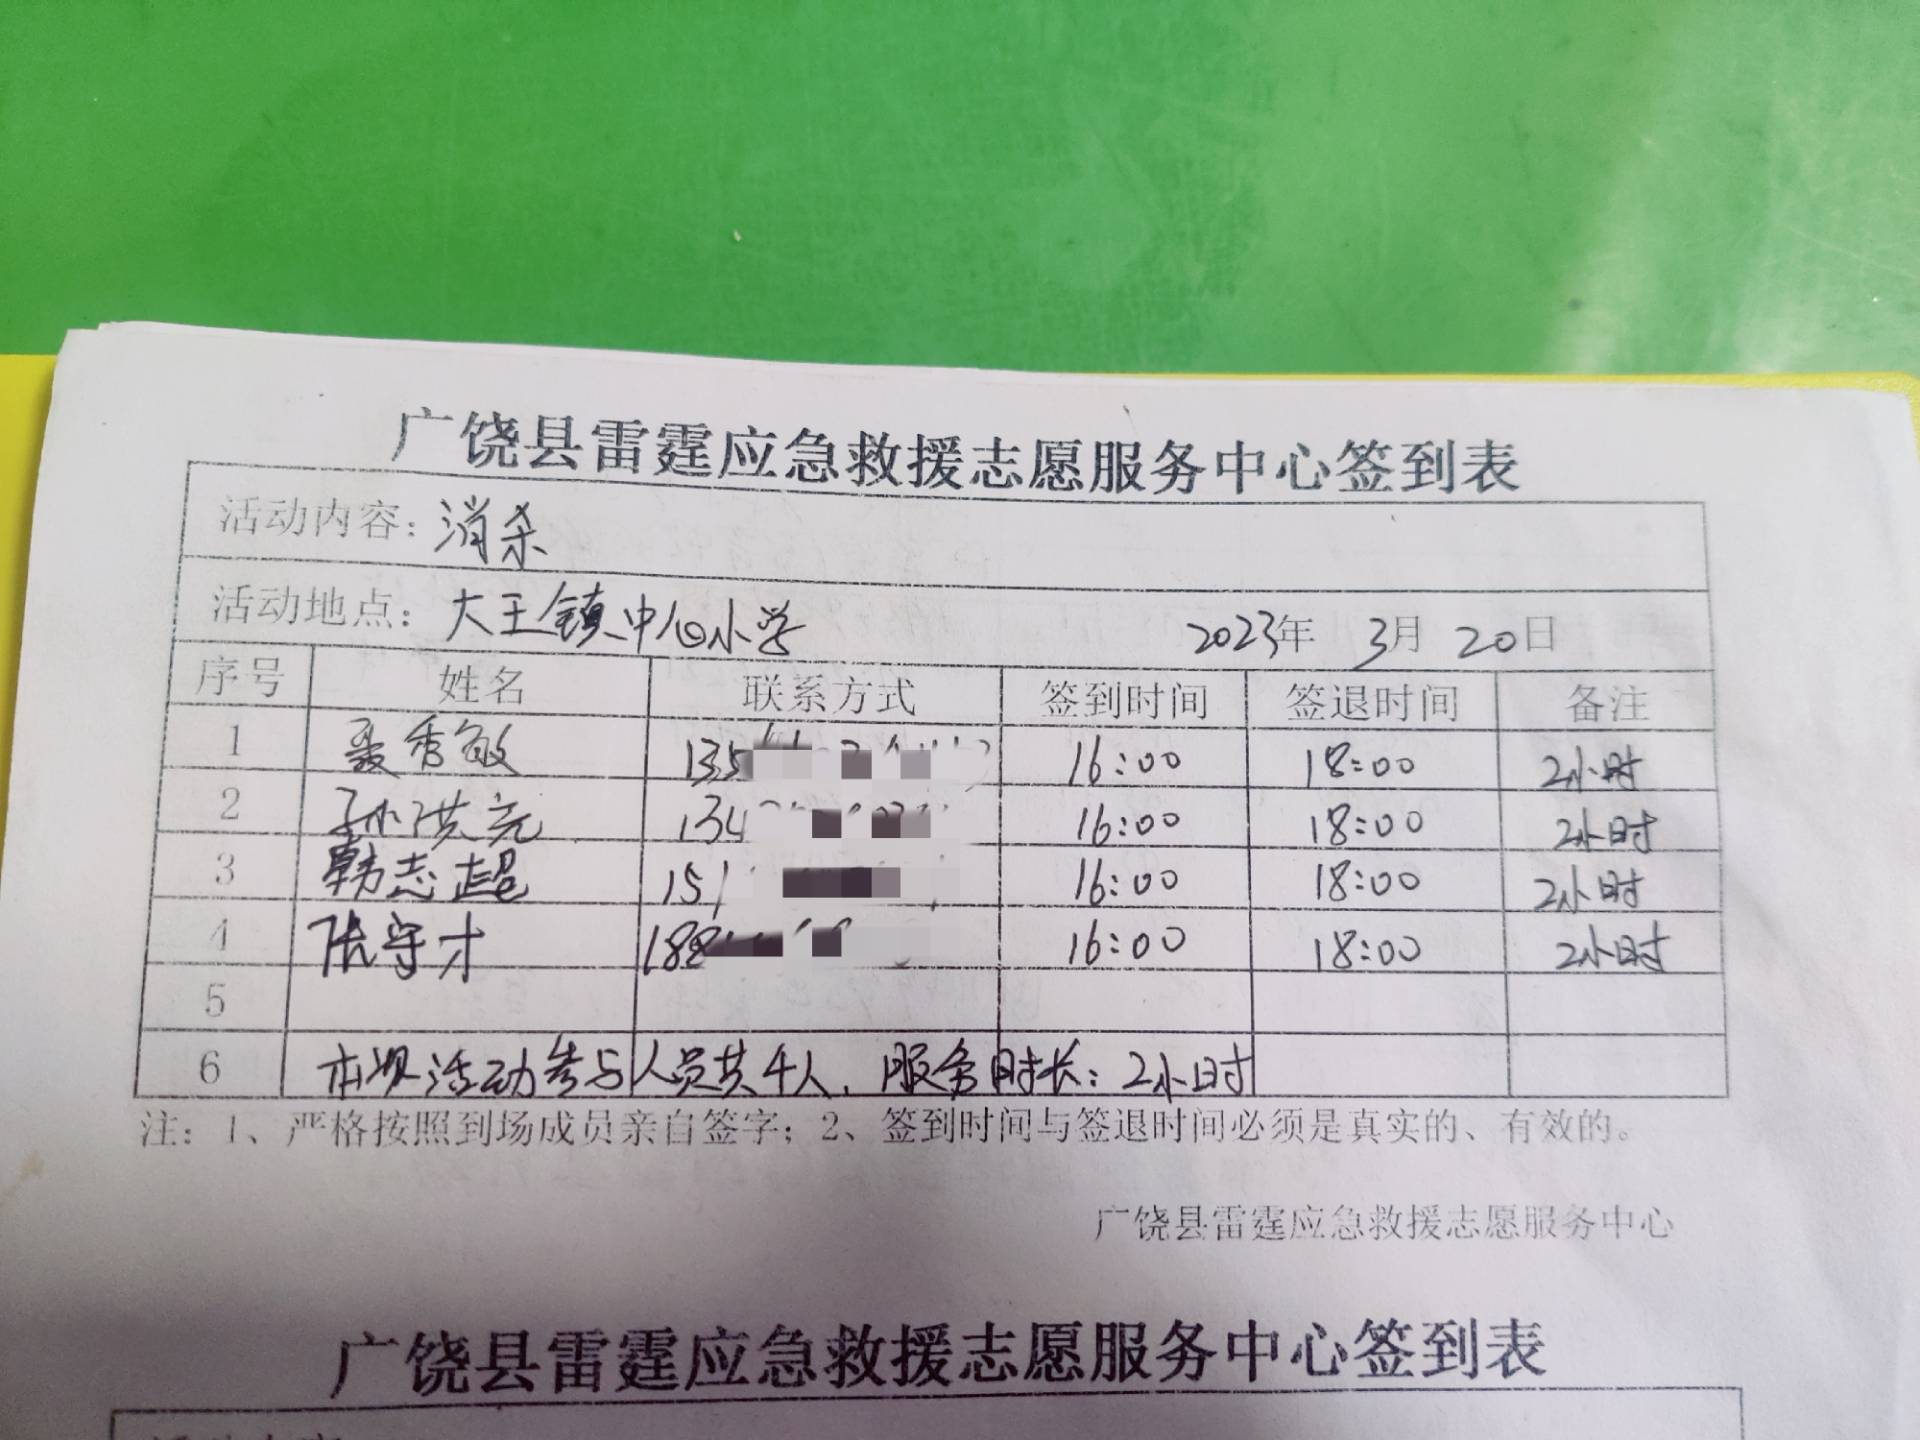 广饶县雷霆应急救援志愿服务中心签到表
活动内容：消杀
活动地点：大王镇中心小学 2023年 3月 20日
序号 姓名 联系方式 签到时间 签退时间 备注
1 聂秀敏 135 16:00 18:00 2小时
2 孙洪亮 134 16:00 18:00 2小时
3 韩志超 151 16:00 18:00 2小时
4 张守才 188 16:00 18:00 2小时
5
6 本次活动参与人员共4人，服务时长：2小时
注：1、严格按照到场成员亲自签字；2、签到时间与签退时间必须是真实的、有效的。
广饶县雷霆应急救援志愿服务中心
广饶县雷霆应急救援志愿服务中心签到表